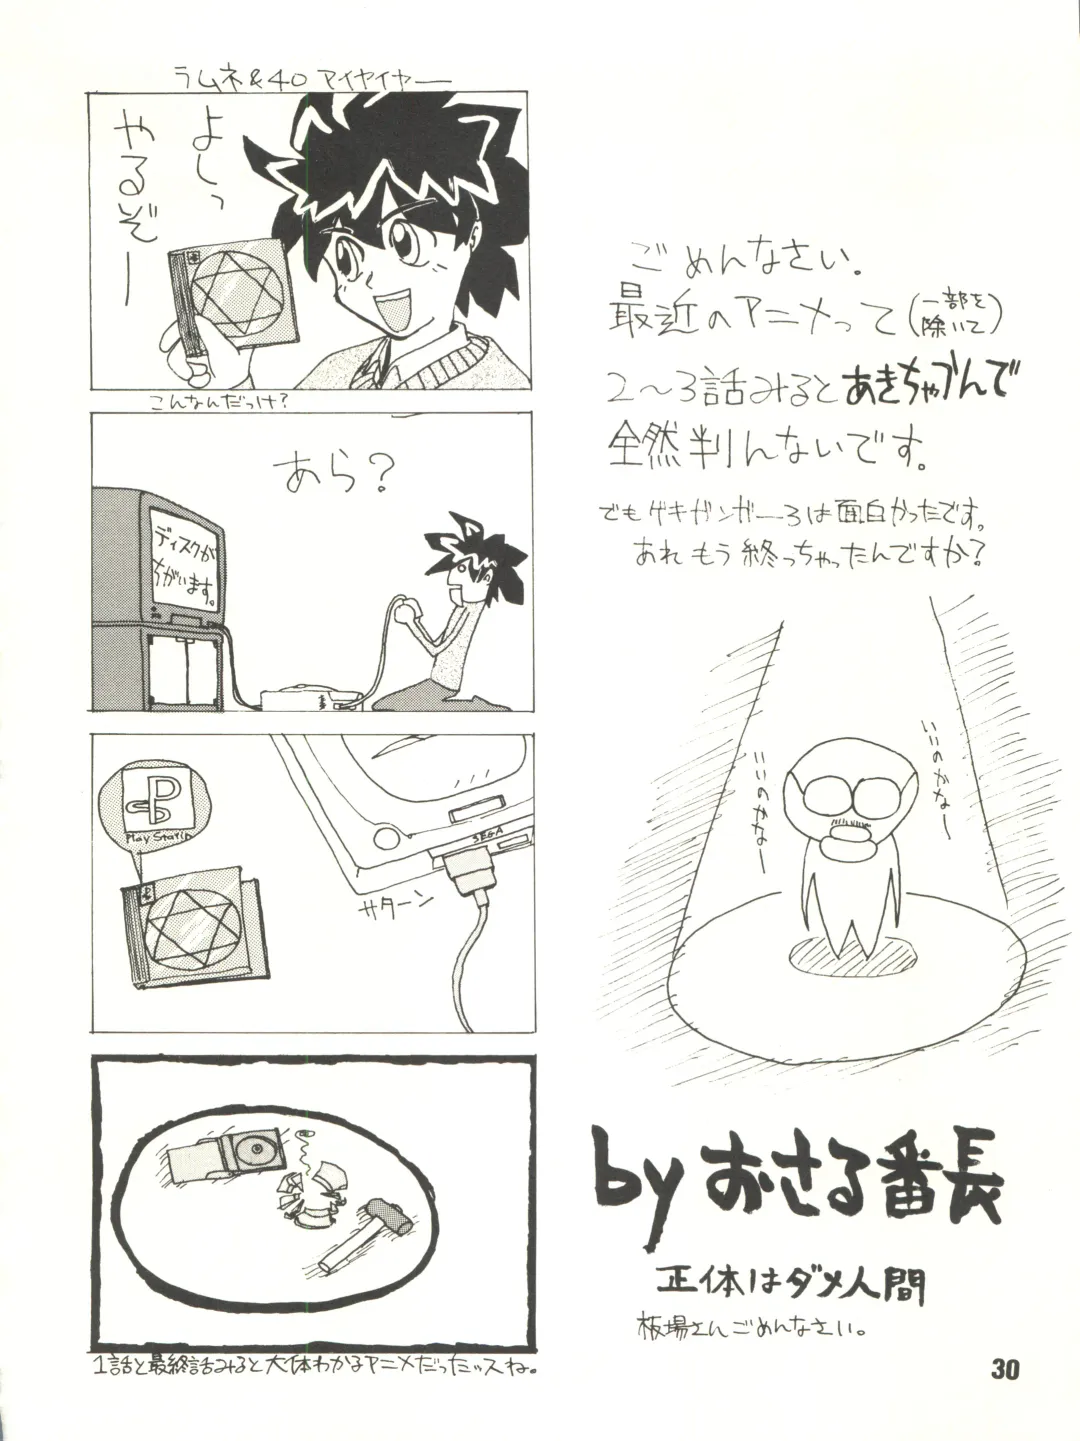 ラムネ&40 アイヤイヤー
よしっ
やるぞー
こんなんだっけ?
あら?
ディスクが
ちがいます。
Play Statio
SEGA
サターン
1話と最終話みると大体わかるアニメだったッスね。
ごめんなさい。
最近のアニメって(一部を除いて)
2〜3話みるとあきちゃうんで
全然判んないです。
でもゲキガンガー3は面白かったです。
あれもう終っちゃったんですか?
いいのかなー
いいのかなー
by おさる番長
正体はダメ人間
板場さんごめんなさい。
30